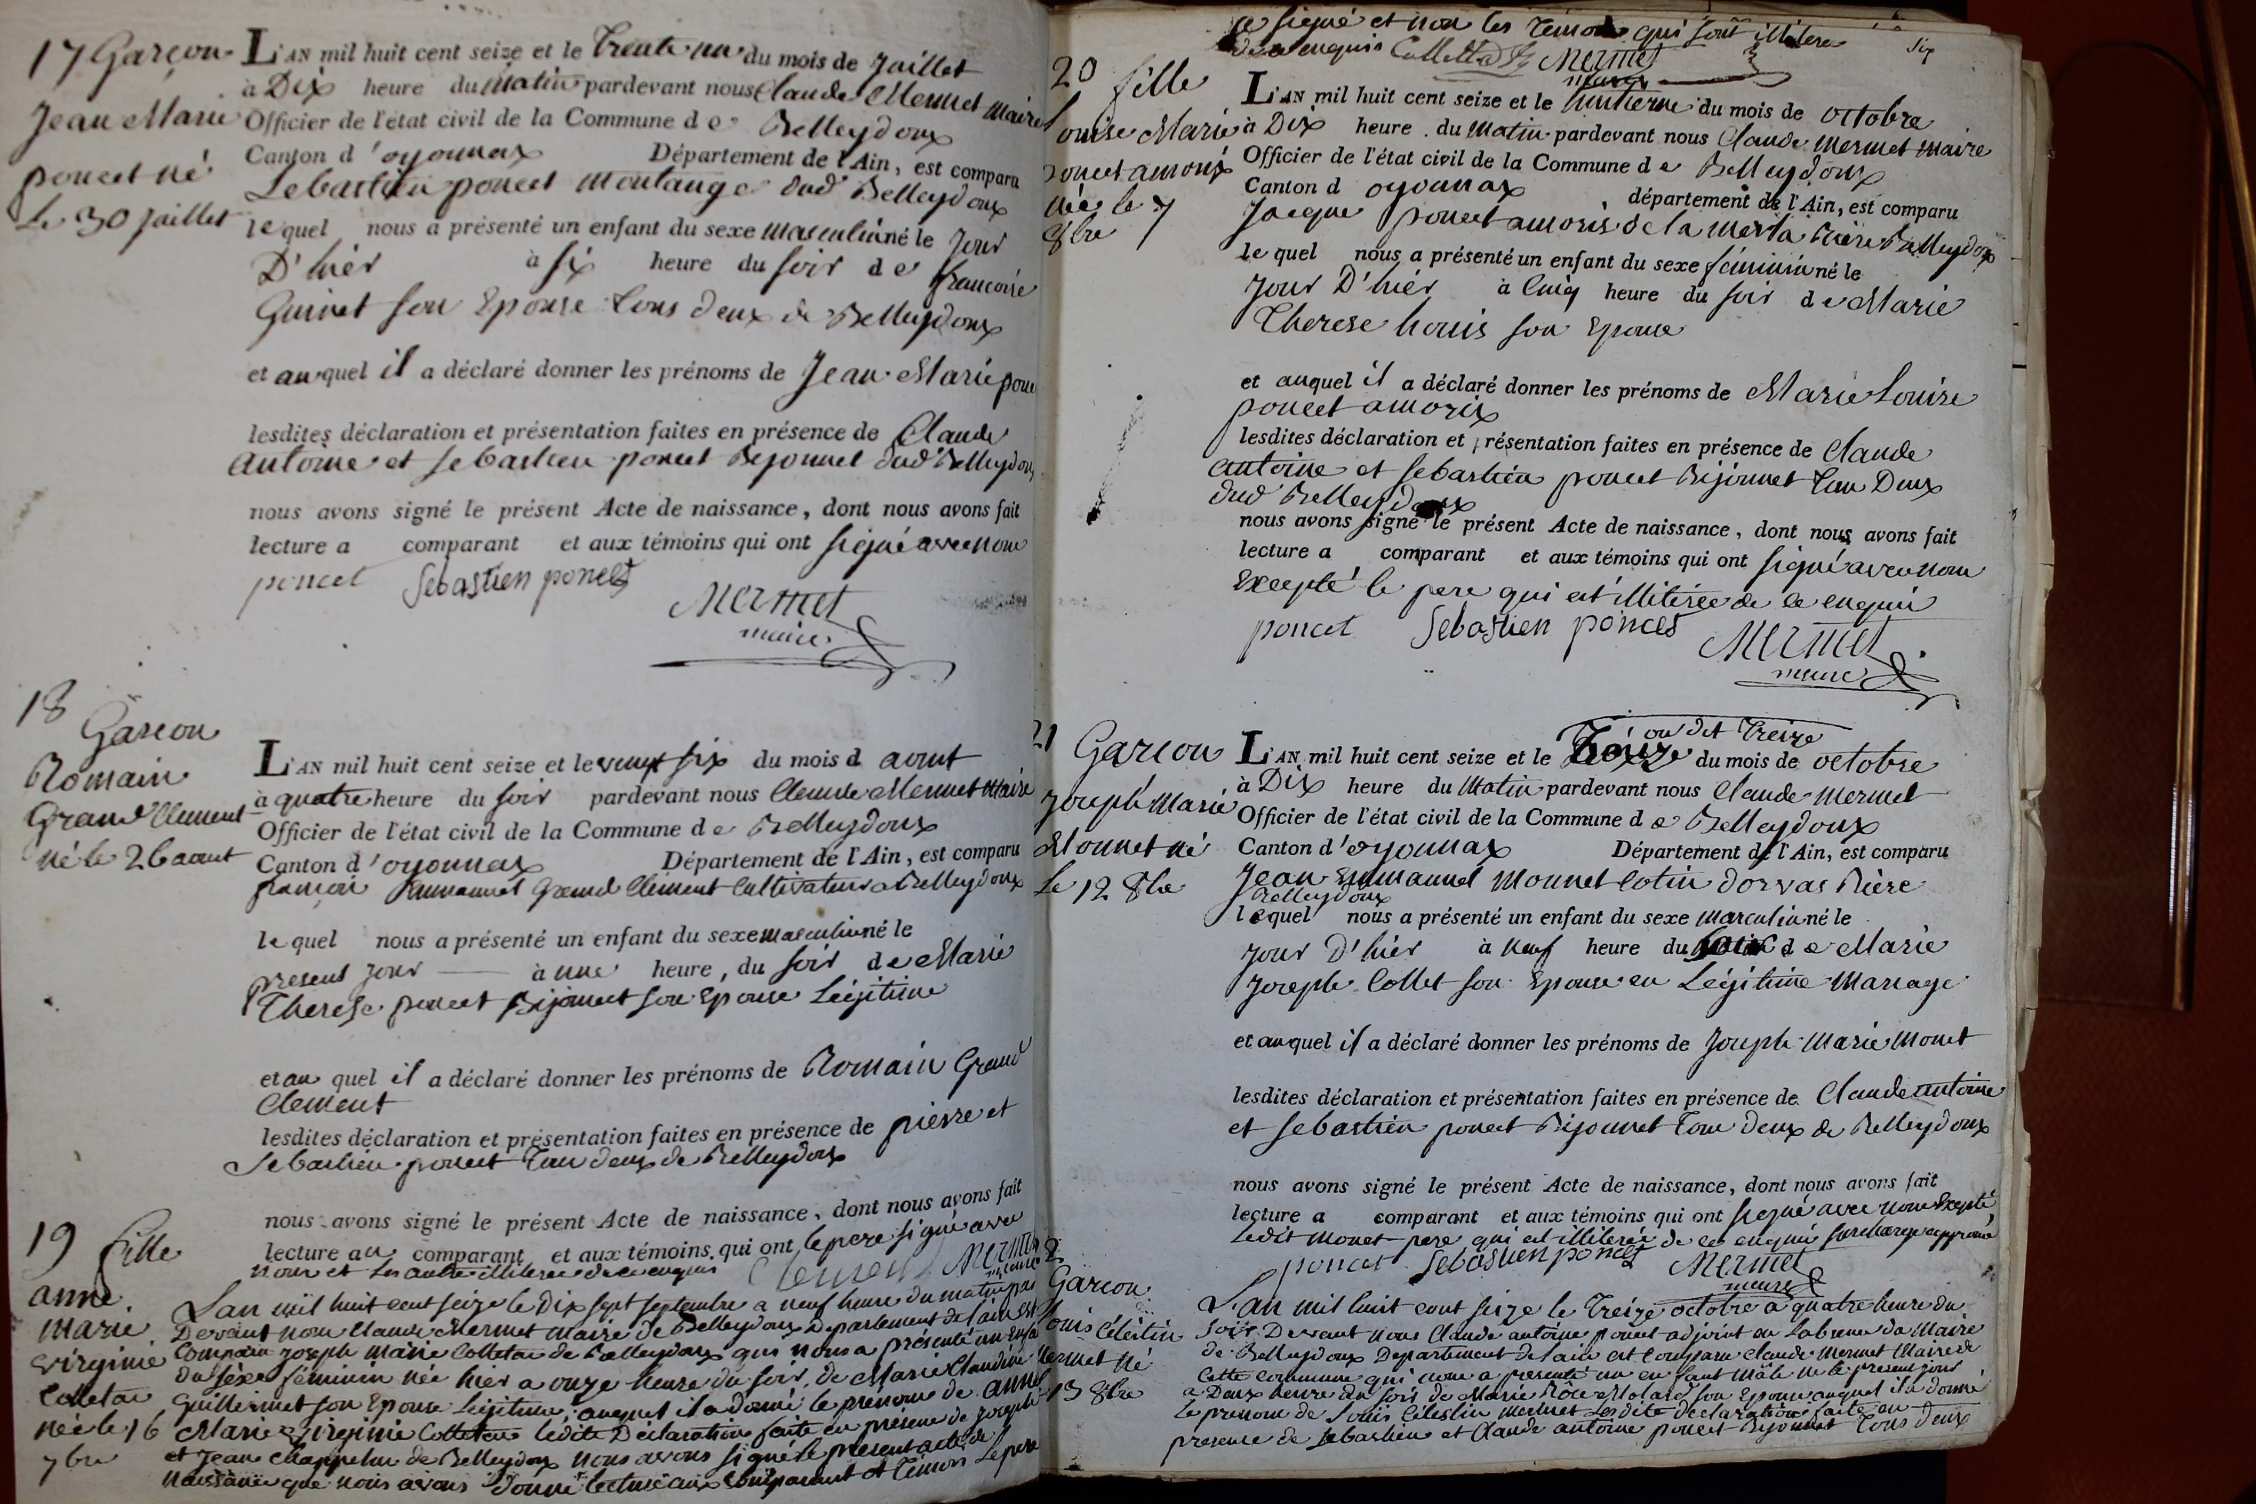 17 Garçon
Jean Marie
poncet né
Le 30 juillet
L'AN mil huit cent seize et le trente un du mois de juillet
à Dix heure du matin pardevant nous Claude Mermet maire
Officier de l'état civil de la Commune de Belleydoux
Canton d'oyonnax Département de l'Ain, est comparu
Sebastien poncet montange dud Belleydoux
lequel nous a présenté un enfant du sexe masculin né le jour
D'hier à six heure du soir de francoise
Guinet son Epouse tous deux de Belleydoux
et auquel il a déclaré donner les prénoms de Jean Marie ponc
lesdites déclaration et présentation faites en présence de Claude
Antoine et sebastien poncet Bijonnet dud Belleydoux
nous avons signé le présent Acte de naissance, dont nous avons fait
lecture a comparant et aux témoins qui ont signé avec nous
poncet Sebastien poncet
Mermet
maire
18
Garcon
Romain
Grand Clement
né le 26 aout
L'AN mil huit cent seize et le vingt six du mois d aout
à quatre heure du soir pardevant nous Claude Mermet maire
Officier de l'état civil de la Commune de Belleydoux
Canton d'oyonnax Département de l'Ain, est comparu
françois Emmanuel Grand Clément Cultivateur a Belleydoux
lequel nous a présenté un enfant du sexe masculin né le
present jour à une heure, du soir de Marie
Therese poncet Bijonnet son Epouse Légitime
et au quel il a déclaré donner les prénoms de Romain Grand
Clement
lesdites déclaration et présentation faites en présence de pierre et
Sebastien poncet tous deux de Belleydoux
nous avons signé le présent Acte de naissance, dont nous avons fait
lecture au comparant et aux témoins qui ont le pere signé avec
nous et les autre illiterée de ce enquis Clement Mermet
maire
19 fille
anne
Marie
virginie
Colletaz
née le 16
7bre
Lan mil huit cent seize le Dix sept septembre a neuf heure du matin par
Devant nous Claude Mermet maire de Belleydoux Departement de lain est
Comparu joseph marie Colletaz de Belleydoux qui nous a présenté un enfa
du sèxe féminin née hier a onze heure du soir, de Marie Claudine
Guillermet son Epouse Légitime, auquel il a donné le prenoms de anne
Marie virginie Colletaz ledite Déclaration faite en presence de joseph
et Jean Chappelu de Belleydoux nous avons signé le present acte de
naissance que nous avons donné lecture aux comparant et témoins Le pere
a signé et non les témoins qui sont illiteré
de ce enquis Colletaz Mermet
maire
six
20 fille
Louise Marie
poncet amorix
née le 7
8bre
L'AN mil huit cent seize et le huitieme du mois de octobre
à Dix heure du matin pardevant nous Claude Mermet maire
Officier de l'état civil de la Commune de Belleydoux
Canton d oyonnax département de l'Ain, est comparu
Jacque poncet amorix de la merla Rière Belleydoux
lequel nous a présenté un enfant du sexe féminin né le
Jour D'hier à Cinq heure du soir de Marie
Therese houis son Epouse
et auquel il a déclaré donner les prénoms de Marie Louise
poncet amorix
lesdites déclaration et présentation faites en présence de Claude
antoine et sebastien poncet Bijonnet tous Deux
dud Belleydoux
nous avons signé le présent Acte de naissance, dont nous avons fait
lecture a comparant et aux témoins qui ont signé avec nous
Excepté le pere qui est illiterée de ce enquis
poncet Sebastien poncet
Mermet
maire
21 Garcon
joseph Marie
Monnet né
Le 12 8bre
ou dit treize
L'AN mil huit cent seize et le treize du mois de octobre
à Dix heure du matin pardevant nous Claude Mermet
Officier de l'état civil de la Commune de Belleydoux
Canton d'oyonnax Département de l'Ain, est comparu
Jean Emmanuel Monnet Cotin dorvas Rière
Belleydoux
lequel nous a présenté un enfant du sexe masculin né le
jour D'hier à neuf heure du de Marie
Joseph Collet son Epouse en Légitime Mariage
et auquel il a déclaré donner les prénoms de Joseph Marie Monet
lesdites déclaration et présentation faites en présence de Claude antoine
et sebastien poncet Bijonnet tous deux de Belleydoux
nous avons signé le présent Acte de naissance, dont nous avons fait
lecture a comparant et aux témoins qui ont signé avec nous Excepté
Ledit Monet pere qui est illiterée de ce enquis surcharge approuvé
poncet Sebastien poncet Mermet
maire
Garcon
Louis Célestin
Mermet né
13 8bre
Lan mil huit cent seize le treize octobre a quatre heure du
soir Devant nous Claude antoine poncet adjoint en Labsence du Maire
de Belleydoux Departement de lain est Comparu Claude Mermet Maire de
Cette Commune qui nous a presenté un enfant mâle né le present jour
a Deux heure du soir de Marie Rose Molard son Epouse auquel il a donné
Le prenom de Louis Célestin Mermet Lesdite déclaration faite en
presence de sebastien et Claude antoine poncet Bijonnet tous deux